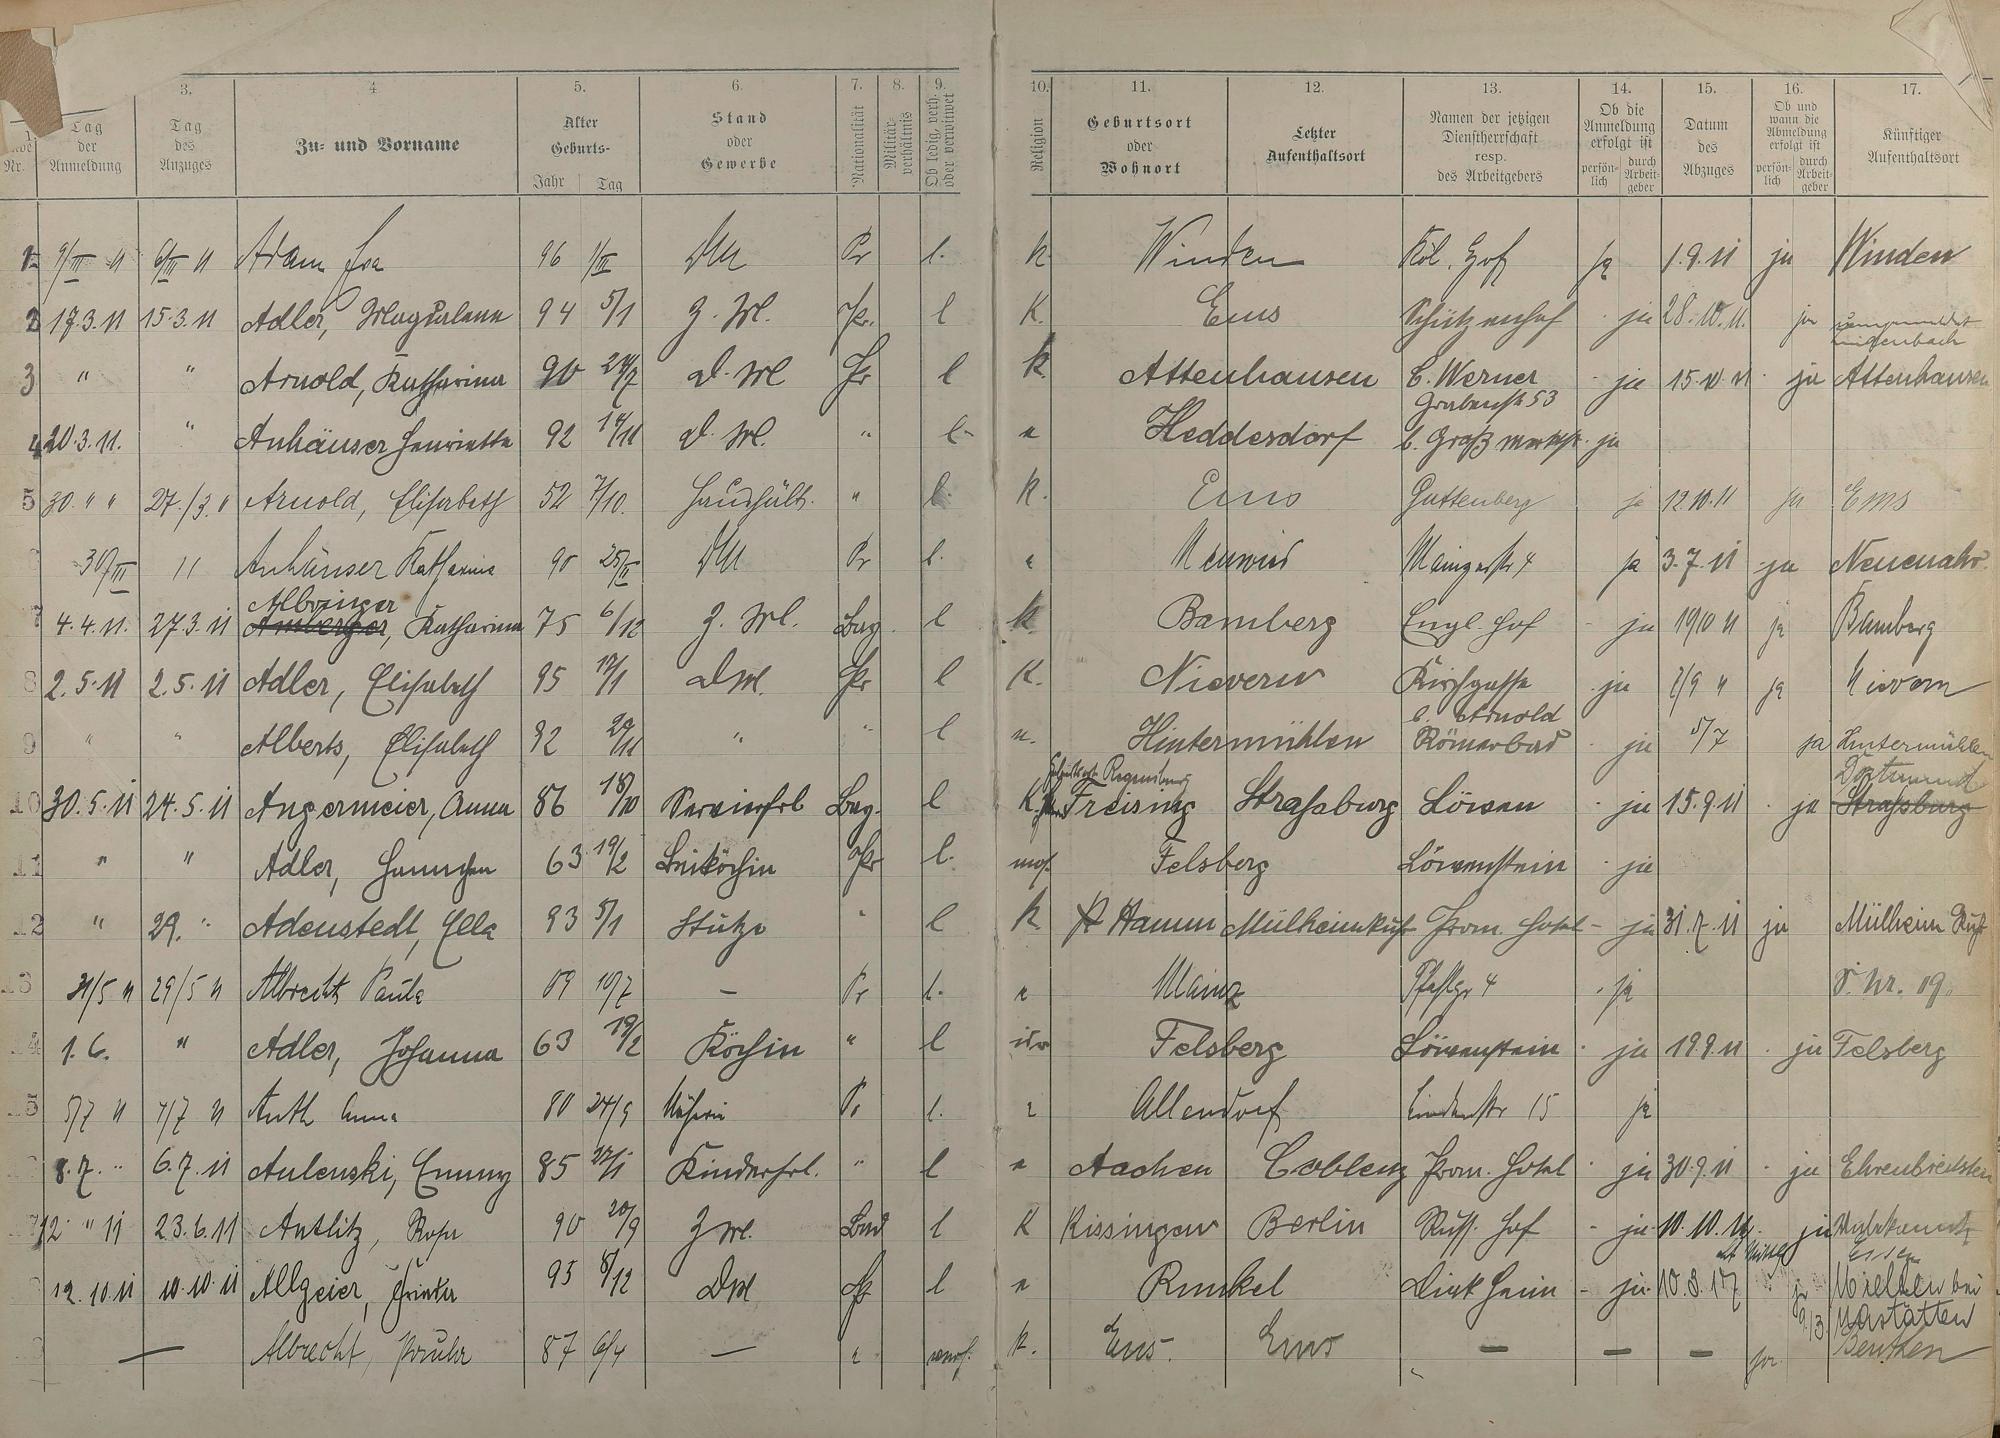 3. 4. 5. 6. 7. 8. 9. 10. 11. 12. 13. 14. 15. 16. 17.
Nr.
Tag der Anmeldung
Tag des Anzuges
Zu- und Vorname
Alter Geburts- Jahr Tag
Stand oder Gewerbe
Nationalität
Militärverhältnis
Ob ledig, verh. oder verwitwet
Religion
Geburtsort oder Wohnort
Letzter Aufenthaltsort
Namen der jetzigen Dienstherrschaft resp. des Arbeitgebers
Ob die Anmeldung erfolgt ist persönlich durch Arbeitgeber
Datum des Abzuges
Ob und wann die Abmeldung erfolgt ist persönlich durch Arbeitgeber
Künftiger Aufenthaltsort
1 9/III 11 6/III 11 Adam 96 1/III DM Pr l. k. Winden Köl. Hof ja 1.9.11 ja Winden
2 17.3.11 15.3.11 Adler, Magdalena 94 5/1 Z. M. Pr. l K. Ems Schützenhof ja 28.10.11. ja
3 " " Arnold, Katharina 90 24/7 D. M Pr l k. Attenhausen b. Werner Grabenstr 53 ja 15.10.11 ja Attenhausen
4 20.3.11. " Anhäuser Henriette 92 14/11 D. M. " l. Heddesdorf b. Groß ja
5 30. " " 27./3. " Arnold, Elisabeth 52 7/10. Haushält. " l. K. Ems Guttenberg ja 12.10.11 ja Ems
6 30/III 11 Anhäuser Katharina 90 25/II DM Pr l. Neuwied Mainzerstr 4 ja 3.7.11 ja Neuenahr
7 4.4.11. 27.3.11 Albringer Amberger, Katharina 75 6/12 Z. M. Bay. l k Bamberg Engl. Hof ja 19 10 11 ja Bamberg
8 2.5.11 2.5.11 Adler, Elisabeth 95 17/1 DM. Pr l K. Nievern Kirchgasse ja 2/9 " ja Nievern
9 " " Alberts, Elisabeth 92 29/11 " " l Hintermühlen b. Arnold Römerbad ja 5/7 ja Hintermühlen
10 30.5.11 24.5.11 Angermeier, Anna 86 18/10 Servierfrl Bay. l K. Geburtsort Regensburg Freising Strassburg Löwen ja 15.9.11 ja Dortmund Strassburg
11 " " Adler, Hannchen 63 19/2 Beiköchin Pr l. mos. Felsberg Löwenstein ja
12 " 29. " Adenstedt, Ella 93 5/1 Stütze " l k. Hamm Mülheim Ruhr Prom. Hotel ja 31.7.11 ja Mülheim Ruhr
13 31/5 11 29/5 11 Albrecht Paula 09 10/7 — Pr l. Mainz Pfahlgr 4 ja S. Nr. 19.
14 1.6. " Adler, Johanna 63 19/2 Köchin " l isr Felsberg Löwenstein ja 19.9.11 ja Felsberg
15 5/7 11 4/7 11 Anth Anna 80 24/9 Näherin Pr l. Allendorf Lindenstr 15 ja
8.7. " 6.7.11 Aulenski, Emmy 85 27/1 Kinderfrl. " l Aachen Coblenz Prom. Hotel ja 30.9.11 ja Ehrenbreitstein
12 " 11 23.6.11 Antlitz, Rosa 90 20/9 Z M. l K Kissingen Berlin Russ. Hof ja 10.10.11. ja Unbekannt Essen
12.10.11 10.10.11 Allgeier, 93 8/12 DM Pr l Runkel ja 10.3.17 ja 9/3. Miehlen bei Nastätten
— Albrecht, Paula 87 6/4 — k. Ems. Ems — — — ja